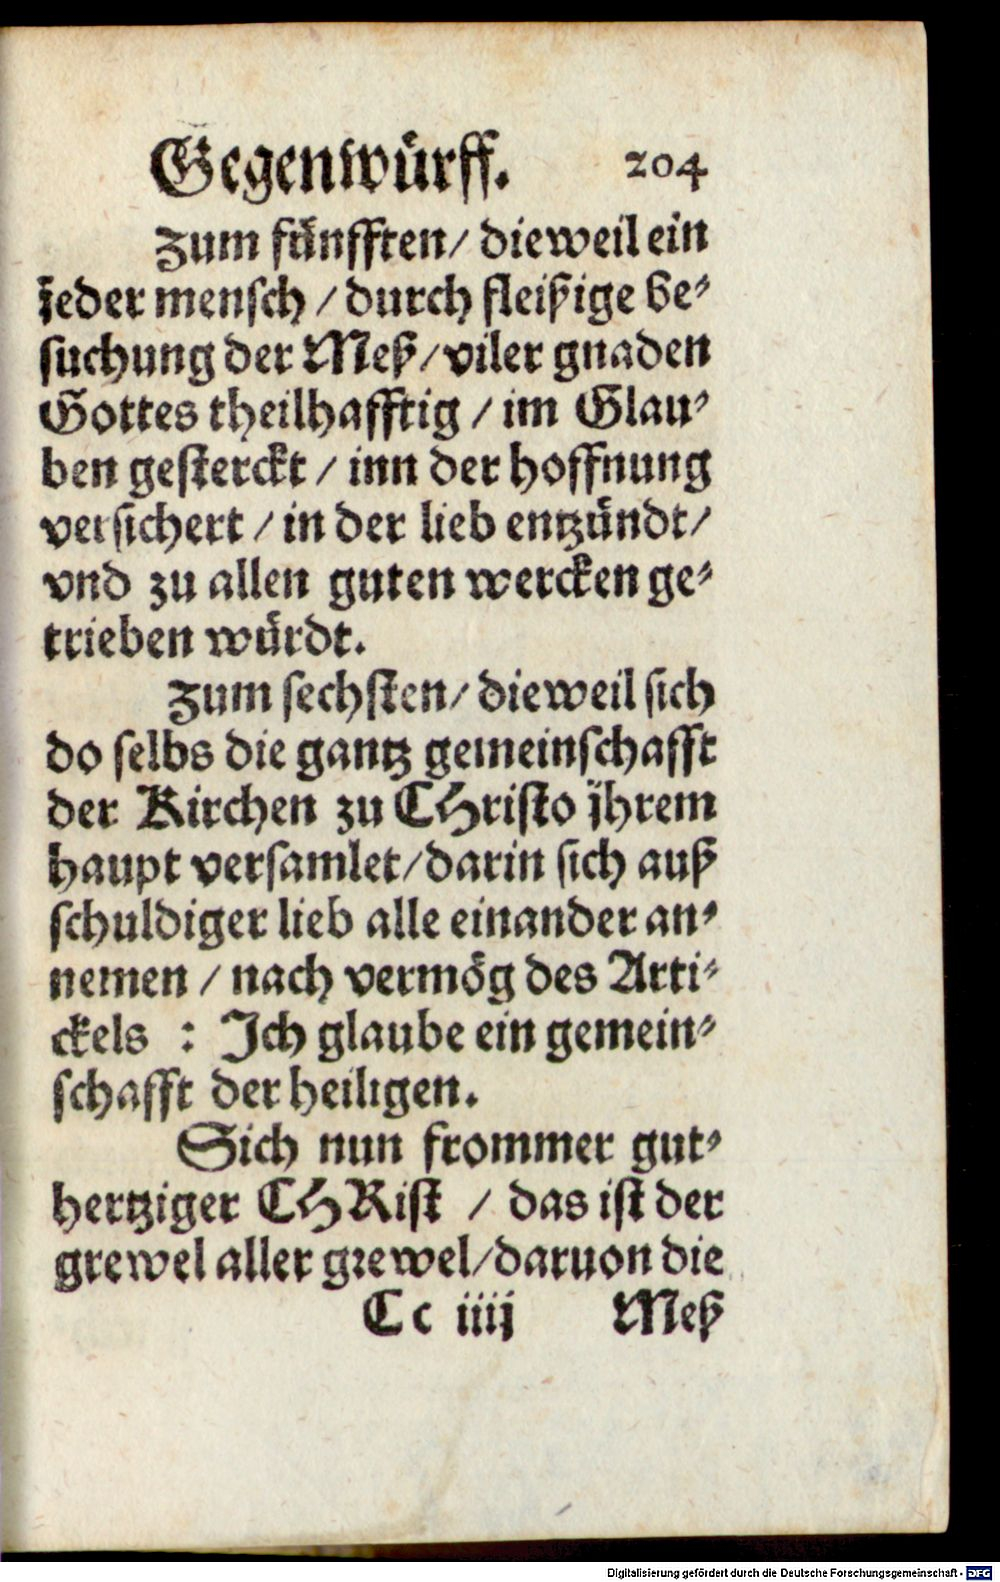 Gegenwürff. 204
Zum fünfften/ dieweil ein
jeder mensch / durch fleißige be-
suchung der Meß/ viler gnaden
Gottes theilhafftig / im Glau-
ben gesterckt / inn der hoffnung
versichert / in der lieb entzündt/
vnd zu allen guten wercken ge-
trieben würdt.
Zum sechsten/ dieweil sich
do selbs die gantz gemeinschafft
der Kirchen zu CHristo jhrem
haupt versamlet/ darin sich auß
schuldiger lieb alle einander an-
nemen / nach vermög des Arti-
ckels : Ich glaube ein gemein-
schafft der heiligen.
Sich nun frommer gut-
hertziger CHRist / das ist der
grewel aller grewel/ daruon die
Cc iiij Meß
Digitalisierung gefördert durch die Deutsche Forschungsgemeinschaft - DFG